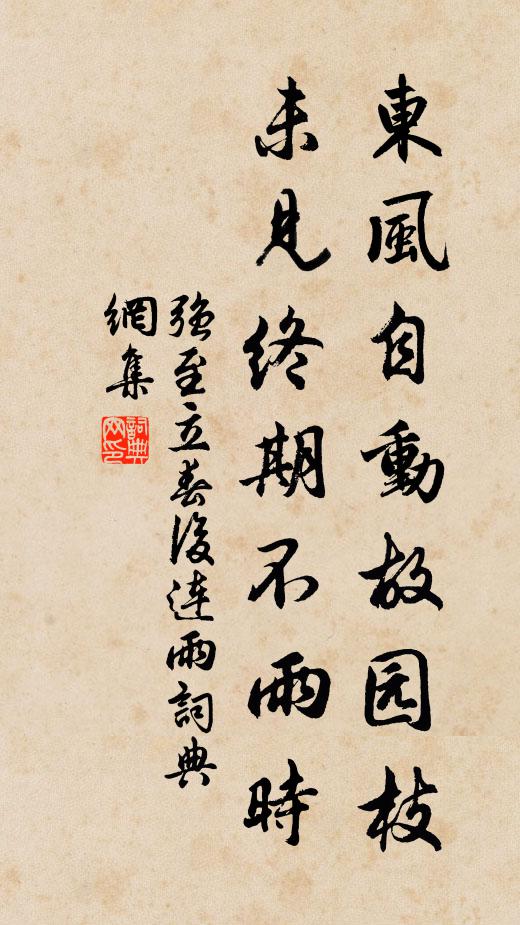 東風自動故园枝
未見終期不雨時
強至立春後連雨詞典
網集
詞典
网印